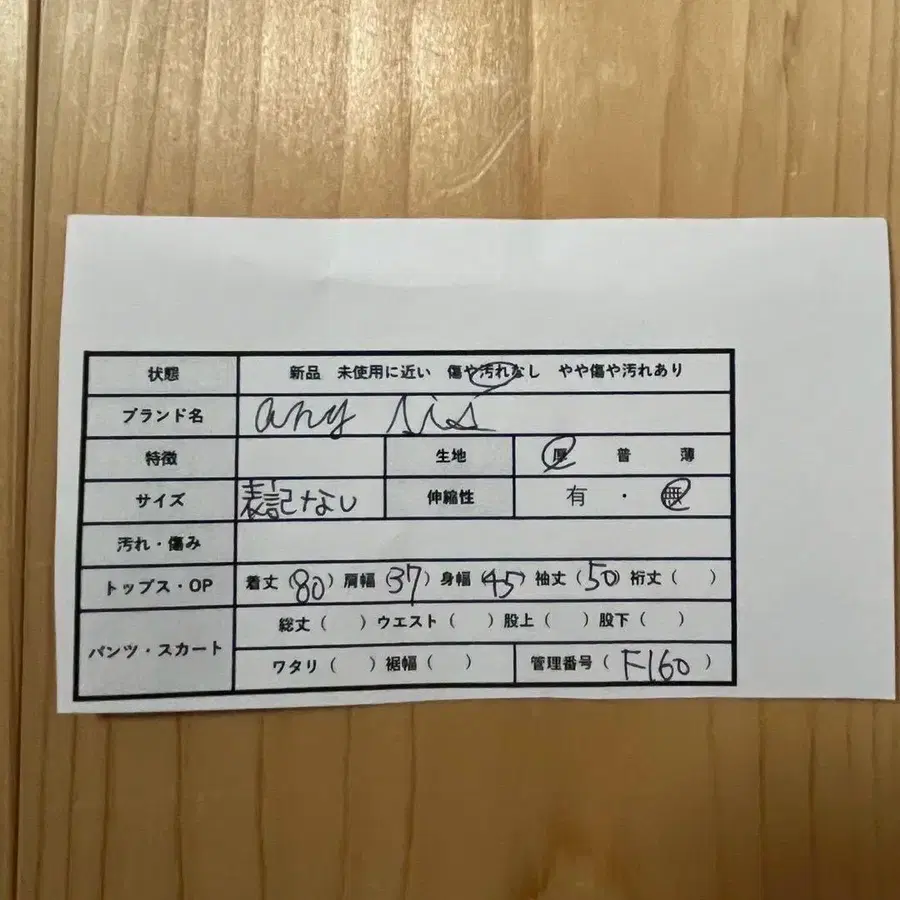 状態 新品 未使用に近い 傷や汚れなし やや傷や汚れあり
ブランド名 any sis
特徴 生地 厚 普 薄
サイズ 表記なし 伸縮性 有 ・ 無
汚れ・傷み
トップス・OP 着丈 (80) 肩幅 (37) 身幅 (45) 袖丈 (50) 裄丈 ( )
パンツ・スカート 総丈 ( ) ウエスト ( ) 股上 ( ) 股下 ( )
ワタリ ( ) 裾幅 ( ) 管理番号 ( F-160 )